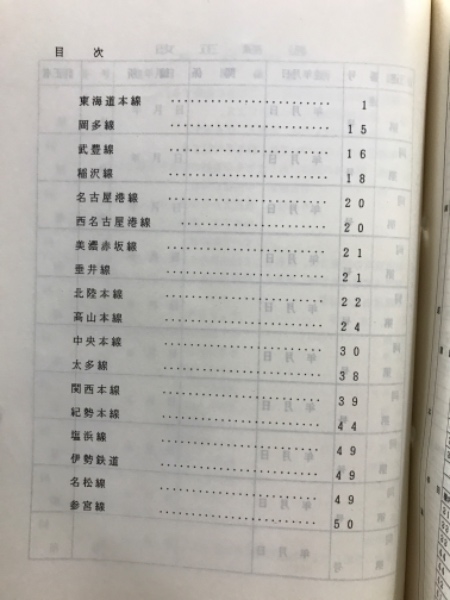 目 次
東海道本線 ………………………… 1
岡多線 ………………………… 15
武豊線 ………………………… 16
稲沢線 ………………………… 18
名古屋港線 ………………………… 20
西名古屋港線 ………………………… 20
美濃赤坂線 ………………………… 21
垂井線 ………………………… 21
北陸本線 ………………………… 22
高山本線 ………………………… 24
中央本線 ………………………… 30
太多線 ………………………… 38
関西本線 ………………………… 39
紀勢本線 ………………………… 44
塩浜線 ………………………… 49
伊勢鉄道 ………………………… 49
名松線 ………………………… 49
参宮線 ………………………… 50